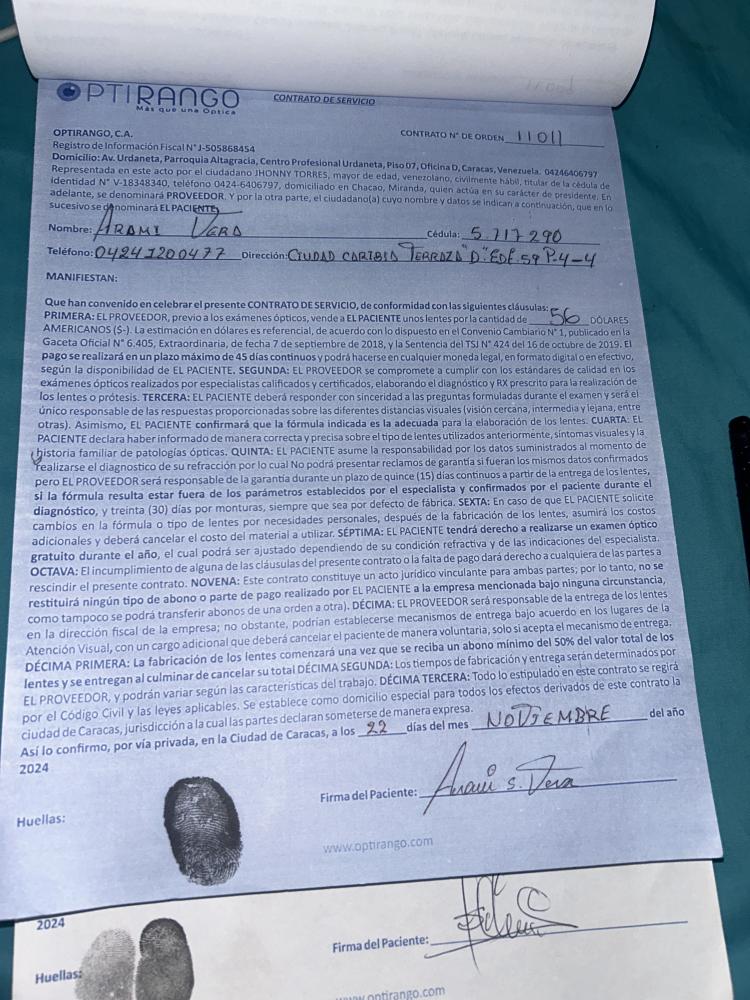 OPTIRANGO
Más que una Óptica
CONTRATO DE SERVICIO
OPTIRANGO, C.A.
CONTRATO N° DE ORDEN 11011
Registro de Información Fiscal N° J-505868454
Domicilio: Av. Urdaneta, Parroquia Altagracia, Centro Profesional Urdaneta, Piso 07, Oficina D, Caracas, Venezuela. 04246406797
Representada en este acto por el ciudadano JHONNY TORRES, mayor de edad, venezolano, civilmente hábil, titular de la cédula de
identidad N° V-18348340, teléfono 0424-6406797, domiciliado en Chacao, Miranda, quien actúa en su carácter de presidente. En
adelante, se denominará PROVEEDOR. Y por la otra parte, el ciudadano(a) cuyo nombre y datos se indican a continuación, que en lo
sucesivo se denominará EL PACIENTE,
Nombre: ARAMI VERA Cédula: 5.717290
Teléfono: 04241200477 Dirección: CIUDAD CARIBIA TERRAZA "D" EDF. 59 P-4-4
MANIFIESTAN:
Que han convenido en celebrar el presente CONTRATO DE SERVICIO, de conformidad con las siguientes cláusulas:
PRIMERA: EL PROVEEDOR, previo a los exámenes ópticos, vende a EL PACIENTE unos lentes por la cantidad de 56 DÓLARES
AMERICANOS ($-). La estimación en dólares es referencial, de acuerdo con lo dispuesto en el Convenio Cambiario N° 1, publicado en la
Gaceta Oficial N° 6.405, Extraordinaria, de fecha 7 de septiembre de 2018, y la Sentencia del TSJ N° 424 del 16 de octubre de 2019. El
pago se realizará en un plazo máximo de 45 días continuos y podrá hacerse en cualquier moneda legal, en formato digital o en efectivo,
según la disponibilidad de EL PACIENTE. SEGUNDA: EL PROVEEDOR se compromete a cumplir con los estándares de calidad en los
exámenes ópticos realizados por especialistas calificados y certificados, elaborando el diagnóstico y RX prescrito para la realización de
los lentes o prótesis. TERCERA: EL PACIENTE deberá responder con sinceridad a las preguntas formuladas durante el examen y será el
único responsable de las respuestas proporcionadas sobre las diferentes distancias visuales (visión cercana, intermedia y lejana, entre
otras). Asimismo, EL PACIENTE confirmará que la fórmula indicada es la adecuada para la elaboración de los lentes. CUARTA: EL
PACIENTE declara haber informado de manera correcta y precisa sobre el tipo de lentes utilizados anteriormente, síntomas visuales y la
historia familiar de patologías ópticas. QUINTA: EL PACIENTE asume la responsabilidad por los datos suministrados al momento de
realizarse el diagnostico de su refracción por lo cual No podrá presentar reclamos de garantía si fueran los mismos datos confirmados
pero EL PROVEEDOR será responsable de la garantía durante un plazo de quince (15) días continuos a partir de la entrega de los lentes,
si la fórmula resulta estar fuera de los parámetros establecidos por el especialista y confirmados por el paciente durante el
diagnóstico, y treinta (30) días por monturas, siempre que sea por defecto de fábrica. SEXTA: En caso de que EL PACIENTE solicite
cambios en la fórmula o tipo de lentes por necesidades personales, después de la fabricación de los lentes, asumirá los costos
adicionales y deberá cancelar el costo del material a utilizar. SÉPTIMA: EL PACIENTE tendrá derecho a realizarse un examen óptico
gratuito durante el año, el cual podrá ser ajustado dependiendo de su condición refractiva y de las indicaciones del especialista.
OCTAVA: El incumplimiento de alguna de las cláusulas del presente contrato o la falta de pago dará derecho a cualquiera de las partes a
rescindir el presente contrato. NOVENA: Este contrato constituye un acto jurídico vinculante para ambas partes; por lo tanto, no se
restituirá ningún tipo de abono o parte de pago realizado por EL PACIENTE a la empresa mencionada bajo ninguna circunstancia,
como tampoco se podrá transferir abonos de una orden a otra). DÉCIMA: EL PROVEEDOR será responsable de la entrega de los lentes
en la dirección fiscal de la empresa; no obstante, podrían establecerse mecanismos de entrega bajo acuerdo en los lugares de la
Atención Visual, con un cargo adicional que deberá cancelar el paciente de manera voluntaria, solo si acepta el mecanismo de entrega.
DÉCIMA PRIMERA: La fabricación de los lentes comenzará una vez que se reciba un abono mínimo del 50% del valor total de los
lentes y se entregan al culminar de cancelar su total DÉCIMA SEGUNDA: Los tiempos de fabricación y entrega serán determinados por
EL PROVEEDOR, y podrán variar según las características del trabajo. DÉCIMA TERCERA: Todo lo estipulado en este contrato se regirá
por el Código Civil y las leyes aplicables. Se establece como domicilio especial para todos los efectos derivados de este contrato la
ciudad de Caracas, jurisdicción a la cual las partes declaran someterse de manera expresa.
Así lo confirmo, por vía privada, en la Ciudad de Caracas, a los 22 días del mes NOVIEMBRE del año
2024
Huellas:
Firma del Paciente: Arami S. Vera
www.optirango.com
2024
Huellas:
Firma del Paciente:
www.optirango.com